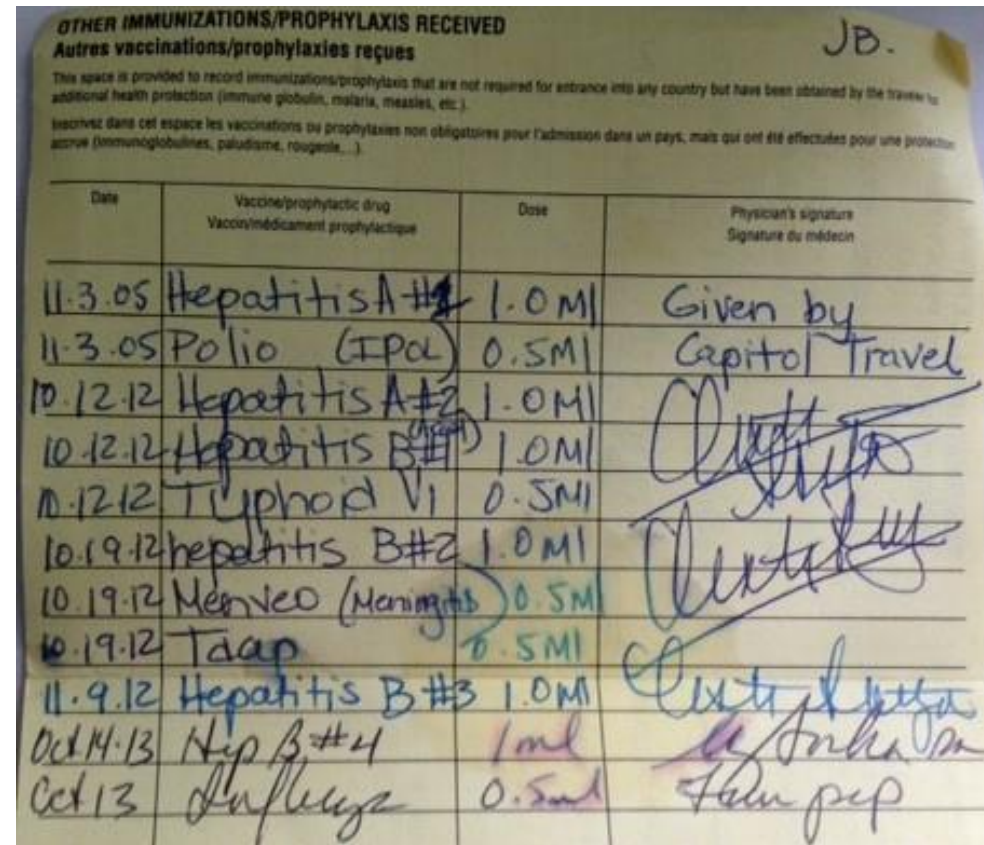 OTHER IMMUNIZATIONS/PROPHYLAXIS RECEIVED
JB.
Autres vaccinations/prophylaxies reçues
This space is provided to record immunizations/prophylaxis that are not required for entrance into any country but have been obtained by the traveler for
additional health protection (immune globulin, malaria, measles, etc.).
Inscrivez dans cet espace les vaccinations ou prophylaxies non obligatoires pour l'admission dans un pays, mais qui ont été effectuées pour une protection
accrue (immunoglobulines, paludisme, rougeole,...).
Date Vaccine/prophylactic drug Dose Physician's signature
Vaccin/médicament prophylactique Signature du médecin
11.3.05 Hepatitis A #1 1.0 Ml Given by
11.3.05 Polio (IPOL) 0.5Ml Capitol Travel
10.12.12 Hepatitis A#2 1.0Ml
10.12.12 Hepatitis B#1 1.0Ml
10.12.12 Typhoid Vi 0.5Ml
10.19.12 hepatitis B#2 1.0Ml
10.19.12 Menveo (Meningitis) 0.5Ml
10.19.12 Tdap 0.5Ml
11.9.12 Hepatitis B #3 1.0Ml
Oct 14.13 Hep B #4 1ml
Oct 13 0.5ml